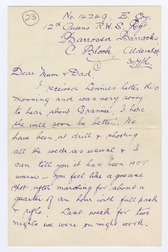 23
No. 14209. E. Coy
12th Queens R.W.S. Regt
Barrosa Barracks
C Block Aldershot
Dear Mum & Dad
I received Connies letter this
morning and was very sorry
to hear about Granny, I hope
she will soon be better. We
have been at drill & shooting
all the week as usual & I
can tell you it has been HOT
warm - you feel like a grease
spot after marching for about a
quarter of an hour with full pack
& rifle. Last week for two
nights we were on night work.